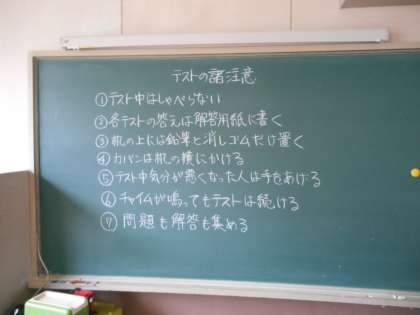 テストの諸注意
①テスト中はしゃべらない
②各テストの答えは解答用紙に書く
③机の上には鉛筆と消しゴムだけ置く
④カバンは机の横にかける
⑤テスト中気分が悪くなった人は手をあげる
⑥チャイムが鳴ってもテストは続ける
⑦問題も解答も集める